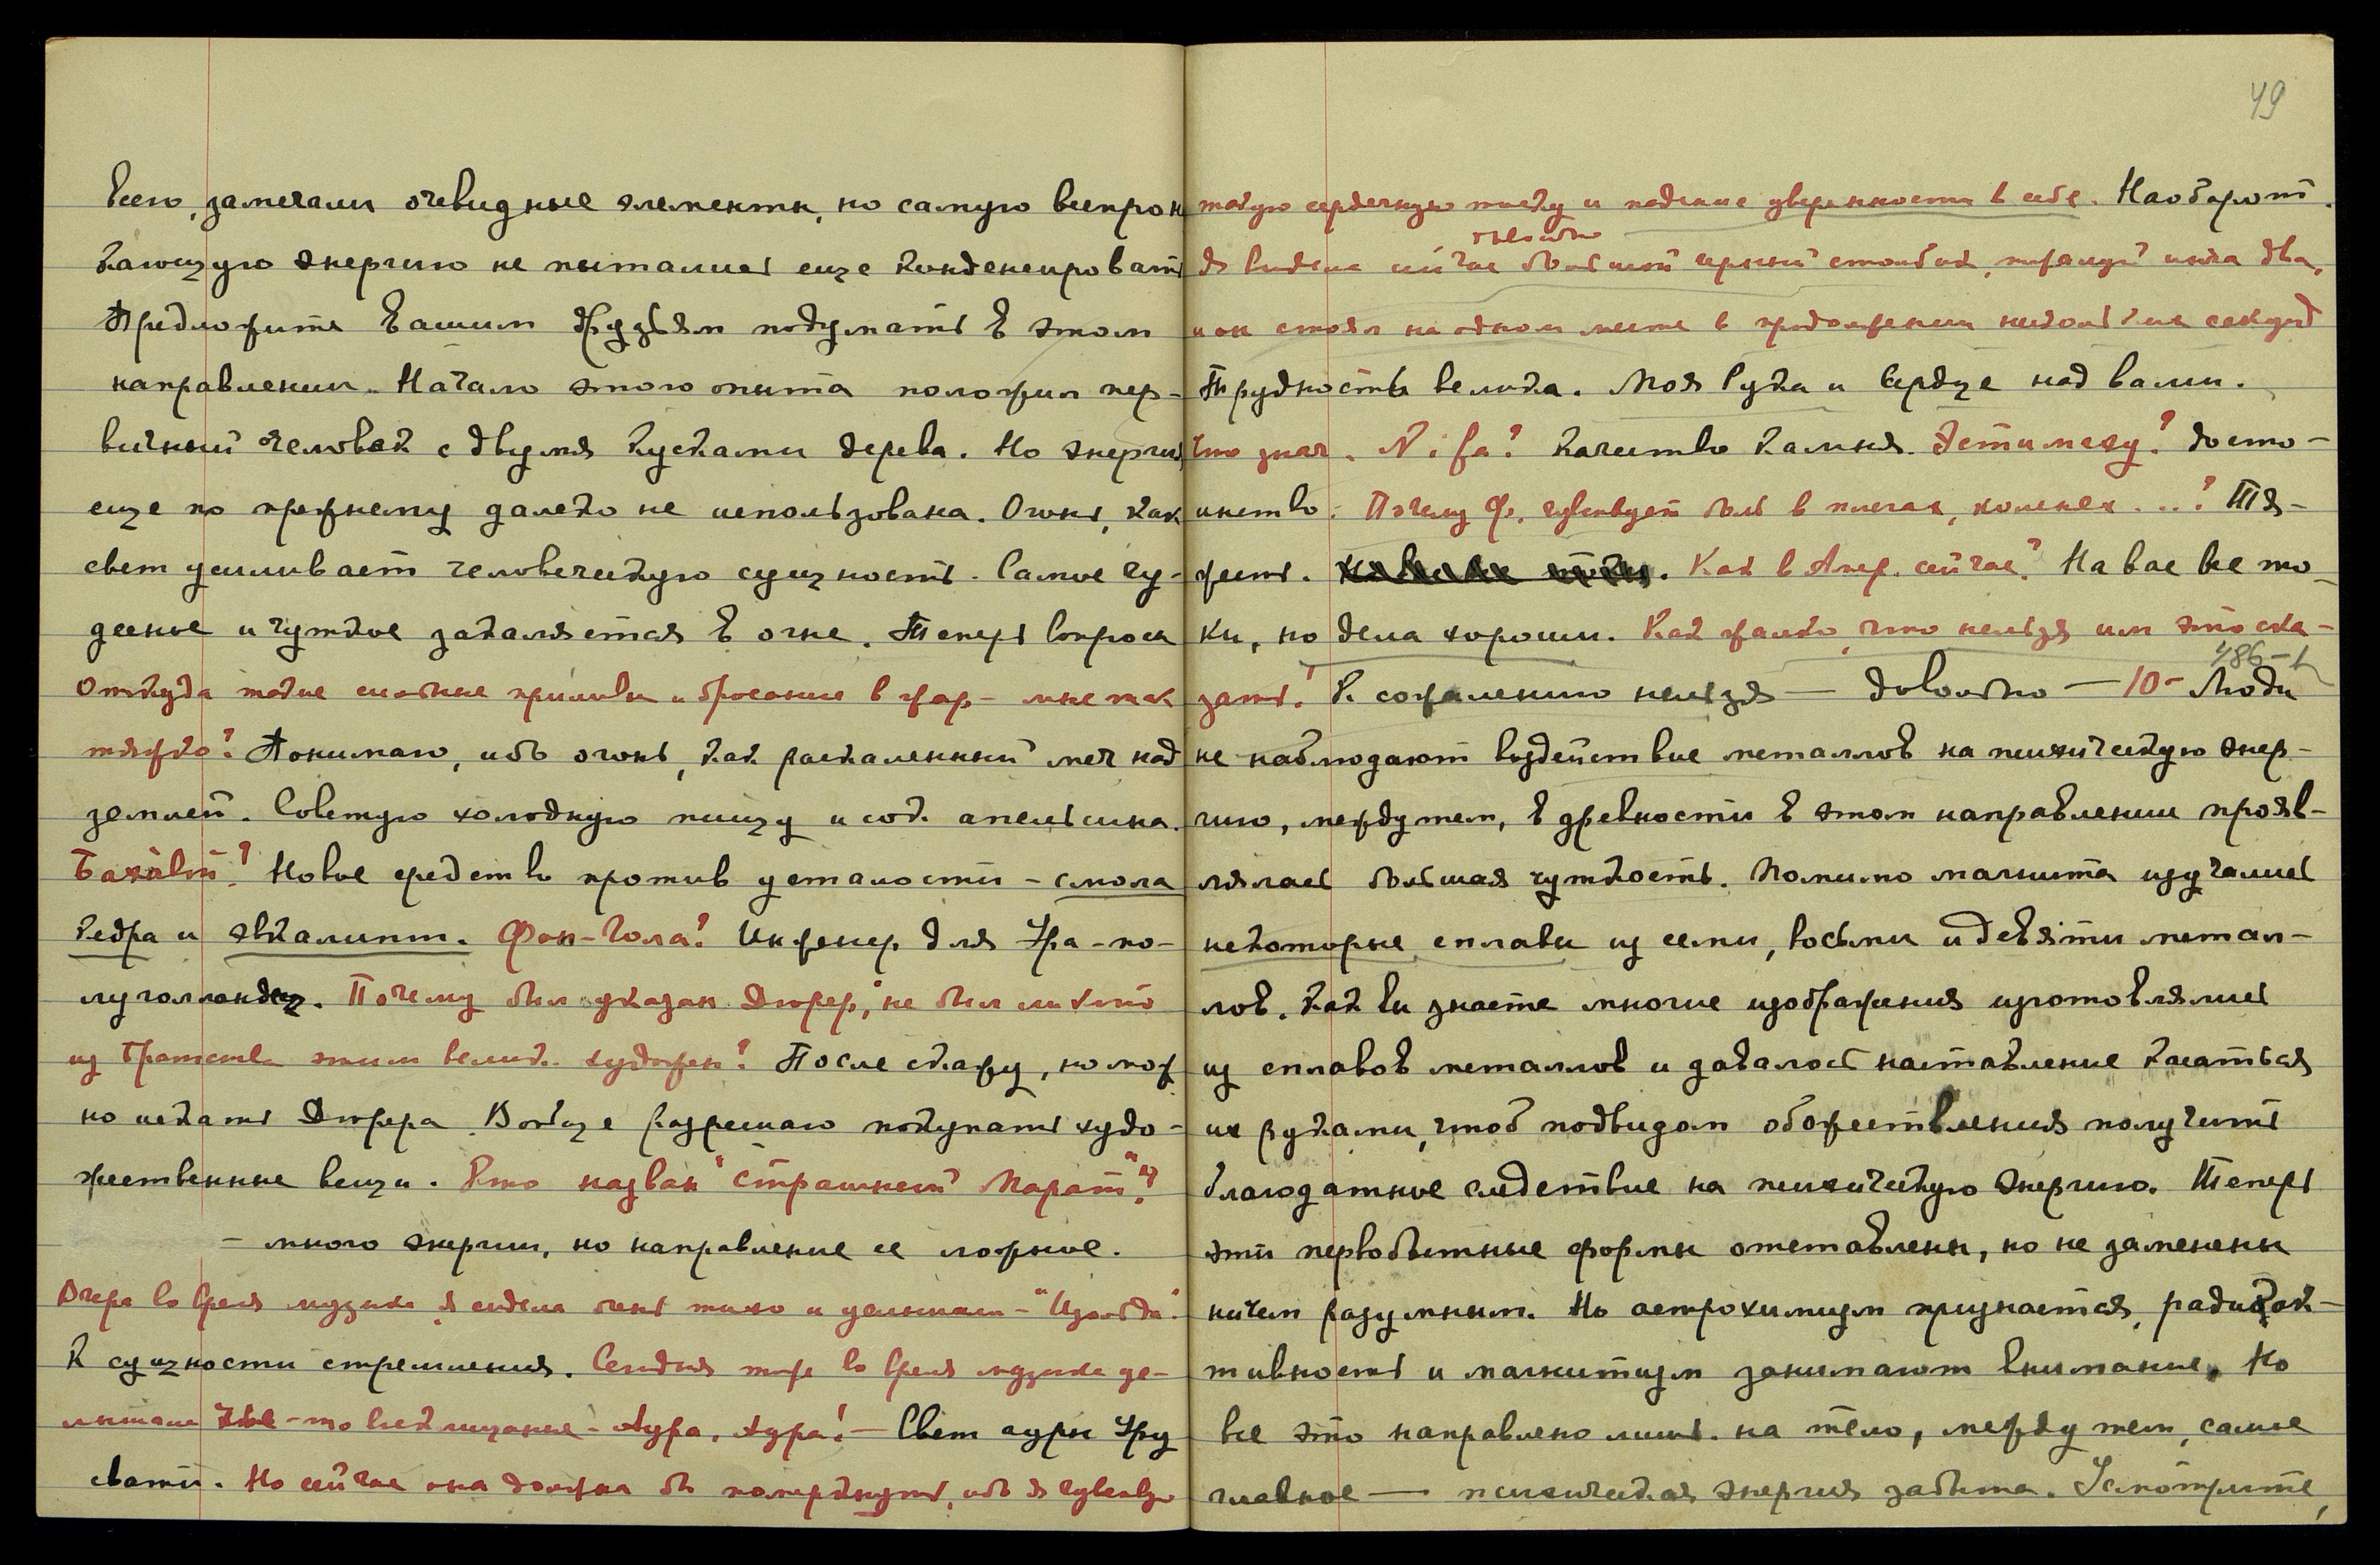 всего, замечали очевидные элементы, но самую всепрони
кающую энергию не пытались еще конденсировать
Предложите Вашим Друзьям подумать в этом
направлении. Начало этого опыта положил пер-
вичный человек с двумя кусками дерева. Но энергия
еще по прежнему далеко не использована. Огонь, как
свет усиливает человеческую сущность. Самое чу-
десное и чуткое закаляется в огне. Теперь вопросы
Откуда такие сильные приливы и бросание в жар – мне так
тяжко? Понимаю, ибо огонь, как раскаленный меч над
землей. Советую холодную пищу и сок апельсина.
Новое средство против усталости – смола
кедра и эвкалипт. Фон-Гола? Инженер для Ура-по-
луголландец. Почему был указан Дюрер, не был ли кто
из Братства этим велик. художн? После скажу, но мож
но искать Дюрера. Вообще разрешаю покупать худо-
жественные вещи. Кто назван "Страшный Марат"?
– много энергии, но направление ее ложное.
Вчера во время музыки я сидела очень тихо и услышала – "Изольда".
К сущности стремления. Сегодня тоже во время музыки ус-
лышала чье-то восклицание – Аура, Аура! – Свет ауры Уру
свати. Но сейчас она должна бы померкнуть, ибо я чувствую
49
такую сердечную тоску и падение уверенности в себе. Наоборот.
Я видела сейчас большой черный столбик, пожалуй инча два,
и он стоял на одном месте в продолжении нескольких секунд
Трудность велика. Моя Рука и Сердце над вами.
Что знач. Nifa? Качество камня. Эстимеду? Досто-
инство. Почему Ф. чувствует боль в плечах, коленях ...? Тя-
жесть. Как в Амер. сейчас? На вас все то
ки, но дела хороши. Как жалко, что нельзя им это ска-
зать! К сожалению нельзя — довольно — 10 – Люди
486-1
не наблюдают воздействие металлов на психическую энер-
гию, между тем, в древности в этом направлении прояв-
лялась большая чуткость. Помимо магнита изучались
некоторые сплавы из семи, восьми и девяти метал-
лов. Как вы знаете многие изображения изготовлялись
из сплавов металлов и давалось наставление касаться
их руками, чтоб под видом обожествления получить
благодатное следствие на психическую энергию. Теперь
эти первобытные формы отставлены, но не заменены
ничем разумным. Но астрохимизм признается, радиоак-
тивность и магнитизм занимают внимание. Но
все это направлено лишь на тело, между тем, самое
главное — психическая энергия забыта. Усмотрите,